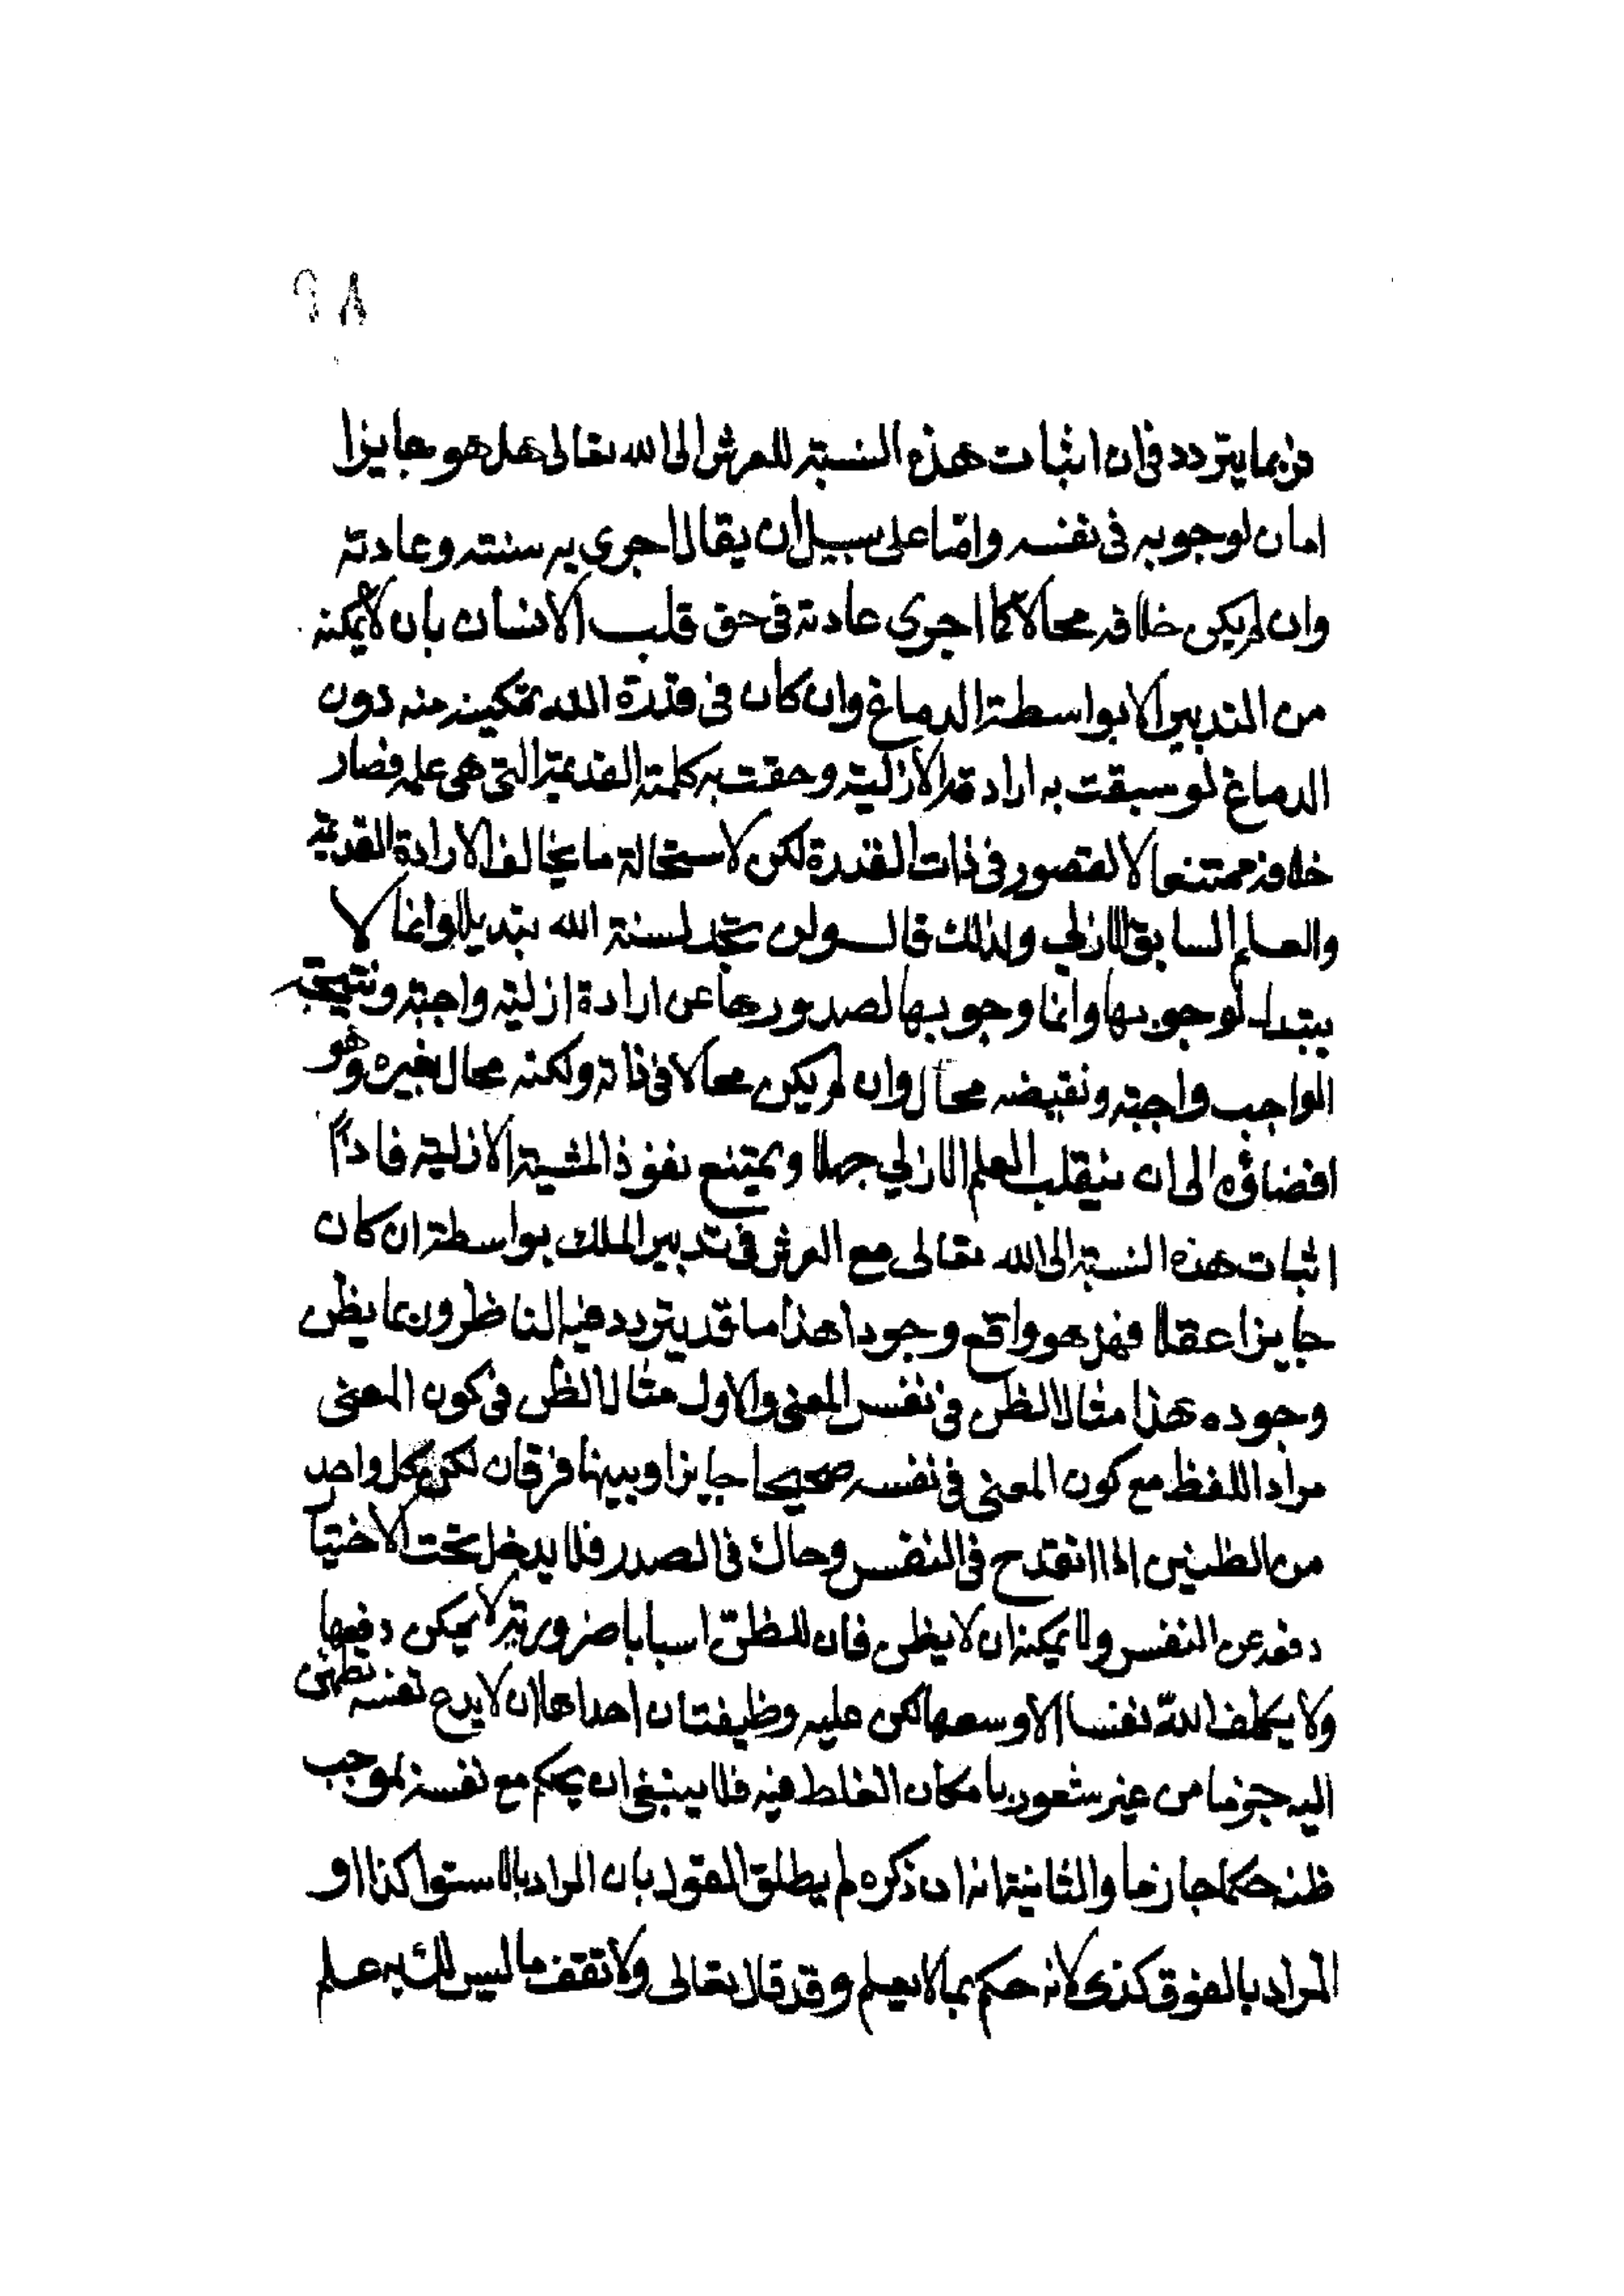 ٩٨
فربما يتردد في ان اثبات هذه النسبة للعرش الى الله تعالى هل هو جايزا
امان لوجوبه في نفسه واما على سبيل ان يقال اجرى به سنته وعادته
وان لم يكن خلافه محالا كما اجرى عادته في حق قلب الانسان بان لا يمكنه
من التدبير الا بواسطة الدماغ وان كان في قدرة الله تمكينه منه دون
الدماغ لو سبقت به ارادته الازلية وحقت به كلمته القديمة التي هي علمه فصار
خلافه ممتنعا لا لقصور في ذات القدرة لكن لاستحالة ما يخالف الارادة القديمة
والعلم السابق الازلي ولذلك قال ولن تجد لسنة الله تبديلا وانما لا
يبتدل لوجوبها وانما وجوبها لصدورها عن ارادة ازلية واجبة ونتيجة
الواجب واجبة ونقيضه محال وان لم يكن محالا في ذاته ولكنه محال لغيره وهو
افضاؤه الى ان ينقلب العلم الازلي جهلا ويمتنع نفوذ المشية الازلية فاذًا
اثبات هذه النسبة الى الله تعالى مع العرش في تدبير الملك بواسطة ان كان
جايزا عقلا فهل هو واقع وجودا هذا ما قد يتردد فيه الناظر وربما يظن
وجوده هذا مثال الظن في نفس المعنى والاول مثال الظن في كون المعنى
مراد اللفظ مع كون المعنى في نفسه صحيحا جايزا وبينهما فرقان لكن كل واحد
من الظنين اذا انقدح في النفس وحاك في الصدر فلا يدخل تحت الاختيا
دفعه عن النفس ولا يمكنه ان لا يظن فان للظنّ اسبابا ضرورية لا يمكن دفعها
ولا يكلف الله نفسا الا وسعها لكن عليه وظيفتان احداهما ان لا يدع نفسه تطمئن
اليه جزما من غير شعور بامكان الغلط فيه فلا ينبغي ان يحكم مع نفسه بموجب
ظنه حكما جازما والثانية انه ان ذكره لم يطلق القول بان المراد بالاستوا كذا او
المراد بالفوق كذى لانه حكم بما لا يعلم وقد قال تعالى ولا تقف ما ليس لك به علم